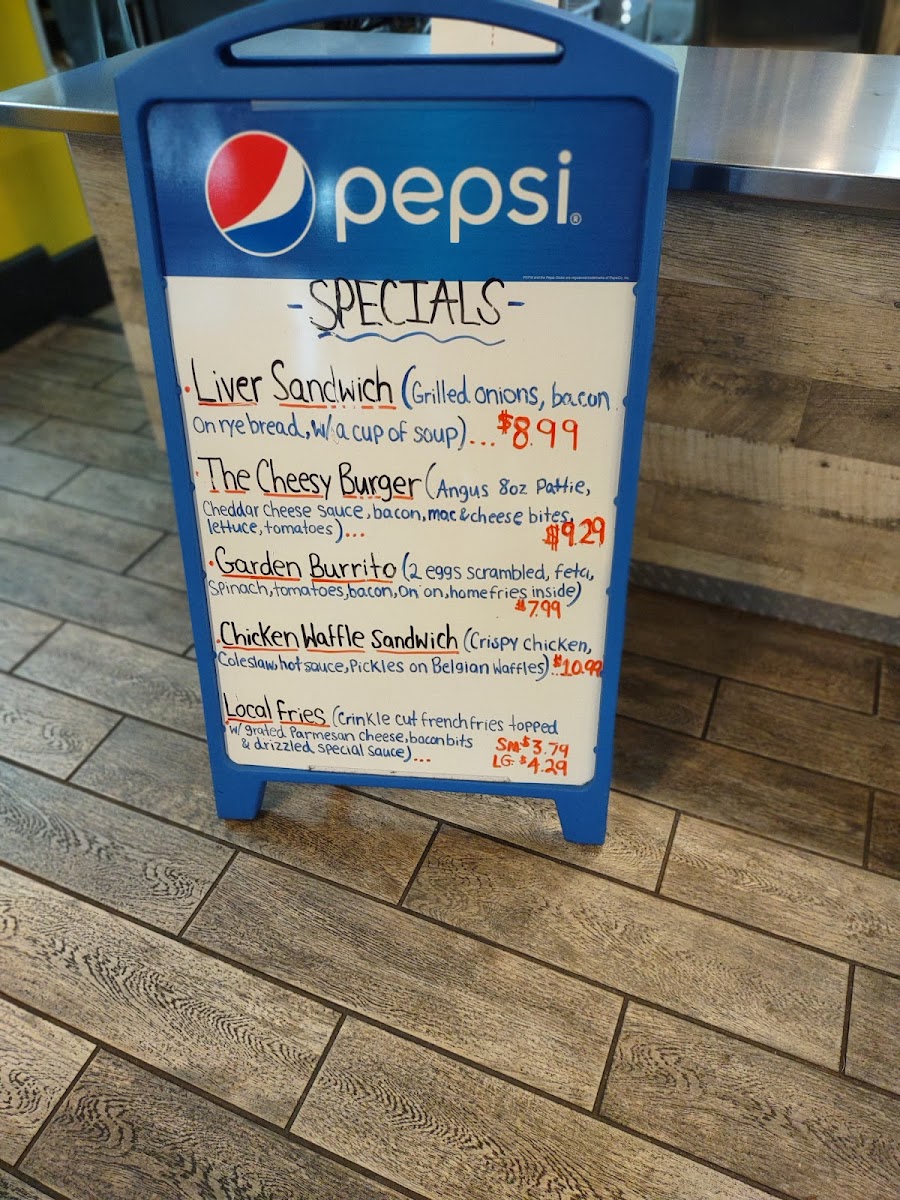 pepsi®
-SPECIALS-
• Liver Sandwich (Grilled onions, bacon
on rye bread, w/ a cup of soup)... $8.99
• The Cheesy Burger (Angus 8oz Pattie,
Cheddar cheese sauce, bacon, mac & cheese bites,
lettuce, tomatoes)... $9.29
• Garden Burrito (2 eggs scrambled, feta,
Spinach, tomatoes, bacon, on on, homefries inside)
$7.99
• Chicken Waffle Sandwich (Crispy chicken,
Coleslaw, hot sauce, Pickles on Belgian Waffles) $10.99
Local Fries (Crinkle cut french fries topped
w/ grated Parmesan cheese, bacon bits
& drizzled special sauce)...
SM-$3.79
LG-$4.29